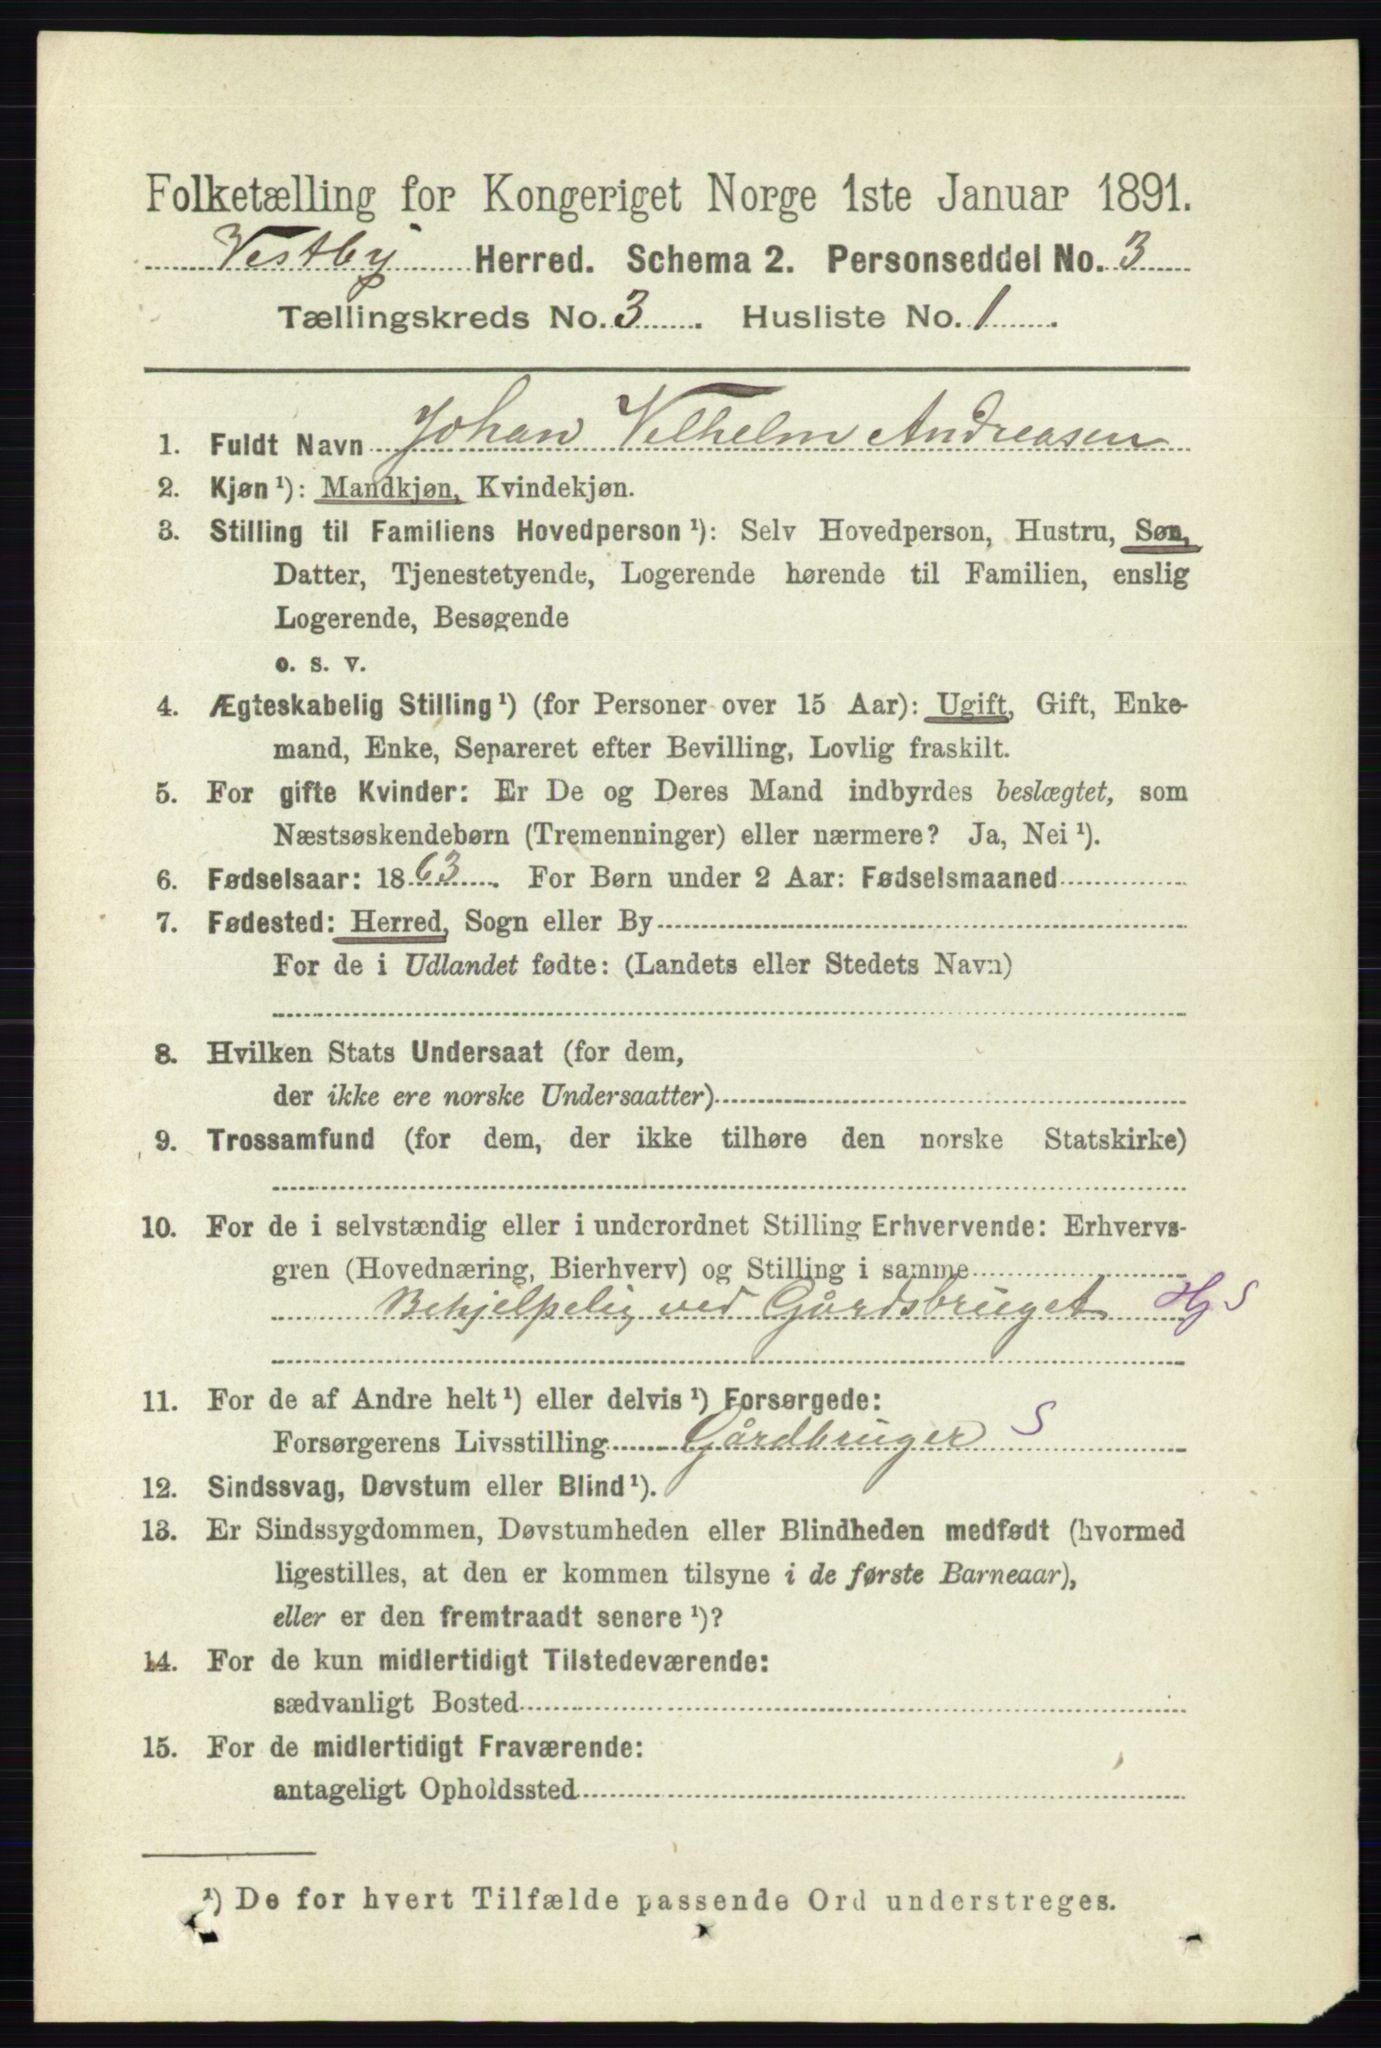 Folketælling for Kongeriget Norge 1ste Januar 1891.
Vestby Herred. Schema 2. Personseddel No. 3
Tællingskreds No. 3. Husliste No. 1.
1. Fuldt Navn Johan Vilhelm Andreasen
2. Kjøn ¹): Mandkjøn, Kvindekjøn.
3. Stilling til Familiens Hovedperson ¹): Selv Hovedperson, Hustru, Søn,
Datter, Tjenestetyende, Logerende hørende til Familien, enslig
Logerende, Besøgende
o. s. v.
4. Ægteskabelig Stilling ¹) (for Personer over 15 Aar): Ugift, Gift, Enke-
mand, Enke, Separeret efter Bevilling, Lovlig fraskilt.
5. For gifte Kvinder: Er De og Deres Mand indbyrdes beslægtet, som
Næstsøskendebørn (Tremenninger) eller nærmere? Ja, Nei ¹).
6. Fødselsaar: 1863. For Børn under 2 Aar: Fødselsmaaned
7. Fødested: Herred, Sogn eller By
For de i Udlandet fødte: (Landets eller Stedets Navn)
8. Hvilken Stats Undersaat (for dem,
der ikke ere norske Undersaatter)
9. Trossamfund (for dem, der ikke tilhøre den norske Statskirke)
10. For de i selvstændig eller i underordnet Stilling Erhvervende: Erhvervs-
gren (Hovednæring, Bierhverv) og Stilling i samme
Behjelpelig ved Gårdsbruget Hj S
11. For de af Andre helt ¹) eller delvis ¹) Forsørgede:
Forsørgerens Livsstilling Gårdbruger S
12. Sindssvag, Døvstum eller Blind ¹).
13. Er Sindssygdommen, Døvstumheden eller Blindheden medfødt (hvormed
ligestilles, at den er kommen tilsyne i de første Barneaar),
eller er den fremtraadt senere ¹)?
14. For de kun midlertidigt Tilstedeværende:
sædvanligt Bosted
15. For de midlertidigt Fraværende:
antageligt Opholdssted
¹) De for hvert Tilfælde passende Ord understreges.